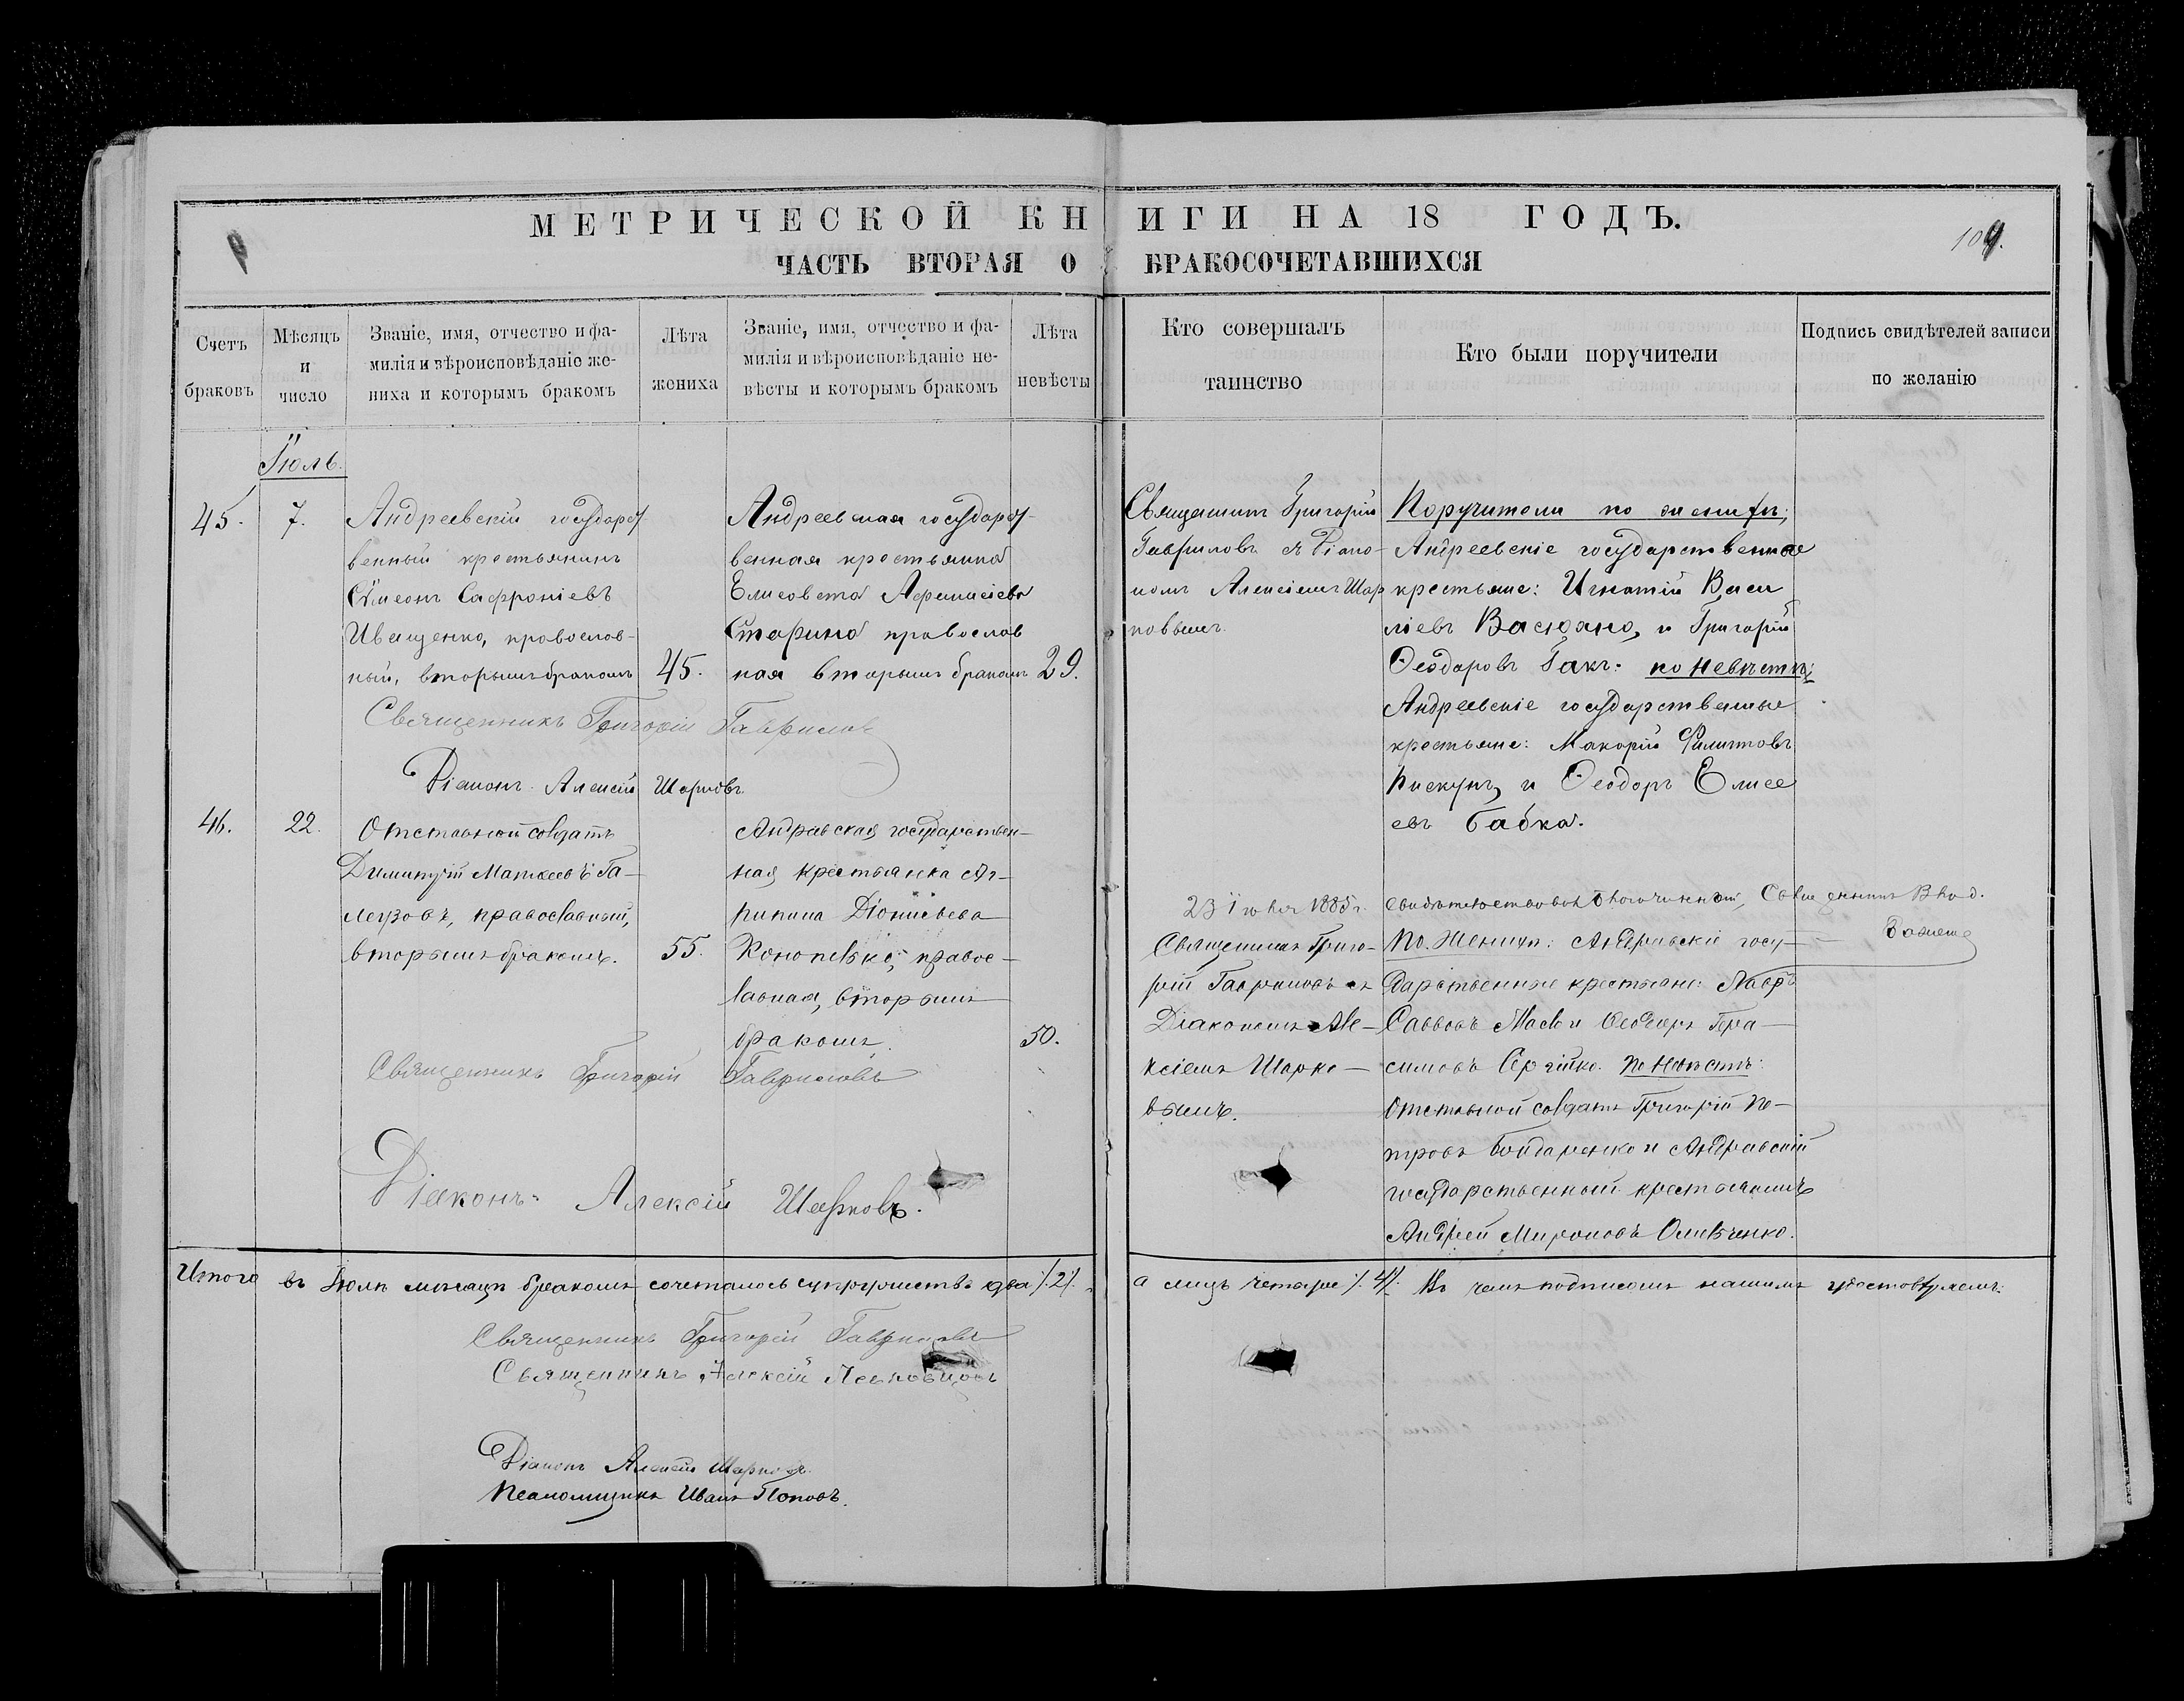 МЕТРИЧЕСКОЙ КНИГИ НА 18 ГОДЪ.
109.
ЧАСТЬ ВТОРАЯ О БРАКОСОЧЕТАВШИХСЯ
Счетъ браковъ
Мѣсяцъ и число
Званіе, имя, отчество и фа-
милія и вѣроисповѣданіе же-
ниха и которымъ бракомъ
Лѣта жениха
Званіе, имя, отчество и фа-
милія и вѣроисповѣданіе не-
вѣсты и которымъ бракомъ
Лѣта невѣсты
Кто совершалъ
таинство
Кто были поручители
Подпись свидѣтелей записи
по желанію
Іюль.
45.
7.
Андреевскій государст-
венный крестьянинъ
Симеонъ Сафроніевъ
Иващенко, православ-
ный, вторымъ бракомъ
45.
Андреевская государст-
венная крестьянка
Елисавета Афанасіева
православ
ная вторымъ бракомъ
29.
Священникъ Григорій
Гавриловъ съ Діако-
номъ Алексіемъ Шар
ковымъ.
Поручители по женихѣ;
Андреевскіе государственные
крестьяне: Игнатій Васи
ліевъ Васюано, и Григорій
Ѳеодоровъ Гакъ. по невѣстѣ;
Андреевскіе государственные
крестьяне: Макарій Филипповъ
Пискунъ, и Ѳеодоръ Елисе
евъ Бабка.
Священникъ Григорій Гавриловъ
Діаконъ Алексій Шарковъ
46.
22.
Отставной солдатъ
Димитрій Матѳеевъ Га-
православный,
вторымъ бракомъ.
55.
Андреевская государствен-
ная крестьянка Аг-
рипина Діонисьева
правос-
лавная, вторымъ
бракомъ.
50.
23 1885 г. свидѣтельствовалъ благочинный, Священникъ
Священникъ Григо-
рій Гавриловъ съ
Діакономъ Але-
ксіемъ Шарко-
вымъ.
По Женихѣ: Андреевскіе госу-
дарственные крестьяне: Лавръ
Саввовъ и Ѳеодоръ Гера-
симовъ По Невѣстѣ:
Отставной солдатъ Григорій Пе-
тровъ Бондаренко и Андреевскій
государственный крестьянинъ
Андрей Мироновъ
Священникъ Григорій Гавриловъ
Діаконъ Алексій Шарковъ.
Итого въ Іюлѣ мѣсяцѣ бракомъ сочеталось супружествъ два /.2/. а лицъ четыре /.4/. Въ чемъ подписомъ нашимъ удостовѣряемъ:
Священникъ Григорій Гавриловъ
Священникъ Алексій
Діаконъ Алексій Шарковъ.
Псаломщикъ Иванъ Поповъ.